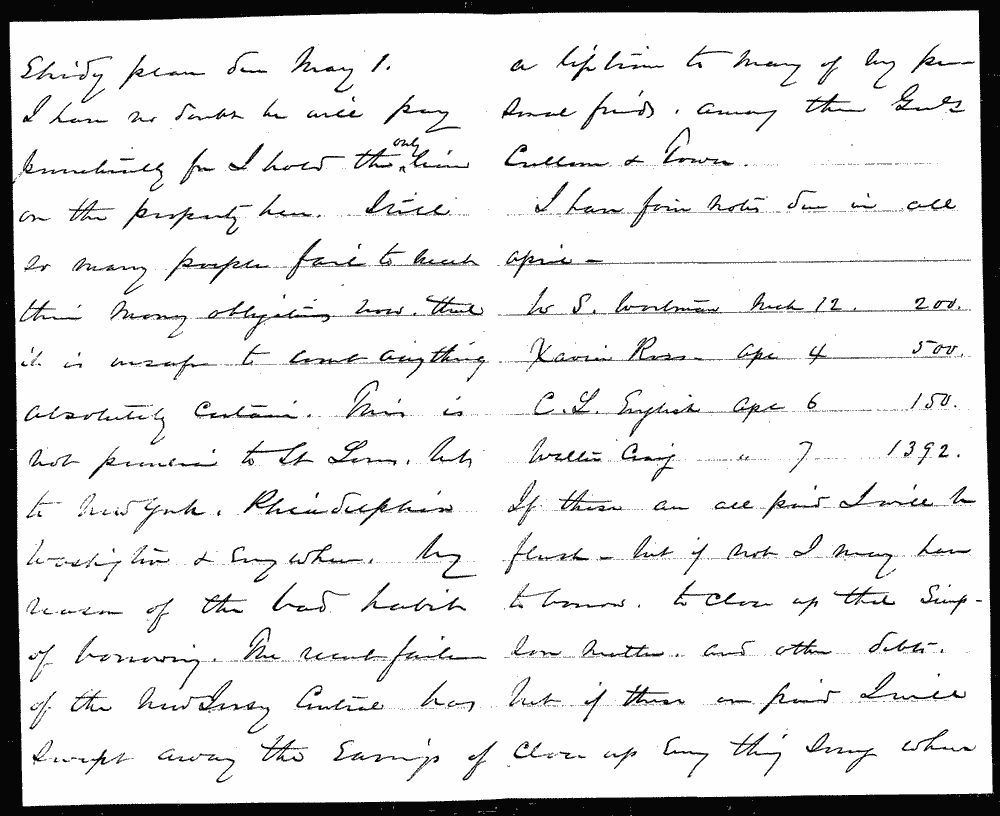 Study place due May 1.
I have no doubt he will pay
punctually for I hold the only lien
on the property here. Still
so many people fail to meet
their money obligations now. that
it is unsafe to count anything
absolutely certain. This is
not peculiar to St Louis. but
to New York. Philadelphia
Washington & Everywhere. by
reason of the bad habit
of borrowing. The recent failure
of the New Jersey Central has
swept away the Earnings of
a lifetime to many of my per-
sonal friends. among them Genls
Cullum & Tower.
I have four notes due in all
April -
W S. Workman Mch 12. 200.
Xavier Ross - Apr 4 500.
C. L. English Apr 6 150.
Walter Craig " 7 1392.
If these are all paid I will be
flush - but if not I may have
to borrow. to close up that Simp-
son matter. and other debts.
but if these are paid I will
close up Every thing Every where